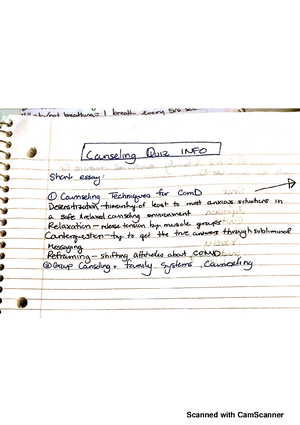 not breathing = 1 breath every 5-6 sec
Counseling Quiz INFO
Short essay:
① Counseling Techniques for ComD
Desensitization - hierarchy of least to most anxious situations in
a safe relaxed counseling environment
Relaxation - release tension by muscle groups
Counterquestion - try to get the true answers through subliminal
Messaging
Reframing - shifting attitudes about COMD
② Group Counseling + Family Systems Counseling
Scanned with CamScanner